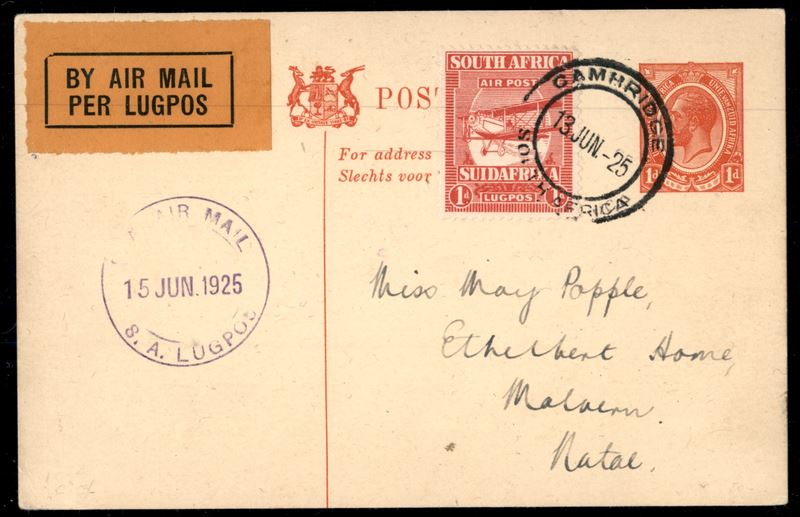 BY AIR MAIL
PER LUGPOS
SOUTH AFRICA
AIR POST
SUIDAFRIKA
1d
LUGPOST
POST
For address
Slechts voor
CAMBRIDGE
13 JUN.-25
SOUTH AFRICA
1d 1d
AIR MAIL
15 JUN. 1925
S. A. LUGPOS
Miss May Popple,
Ethelbert Home,
Malvern.
Natal.